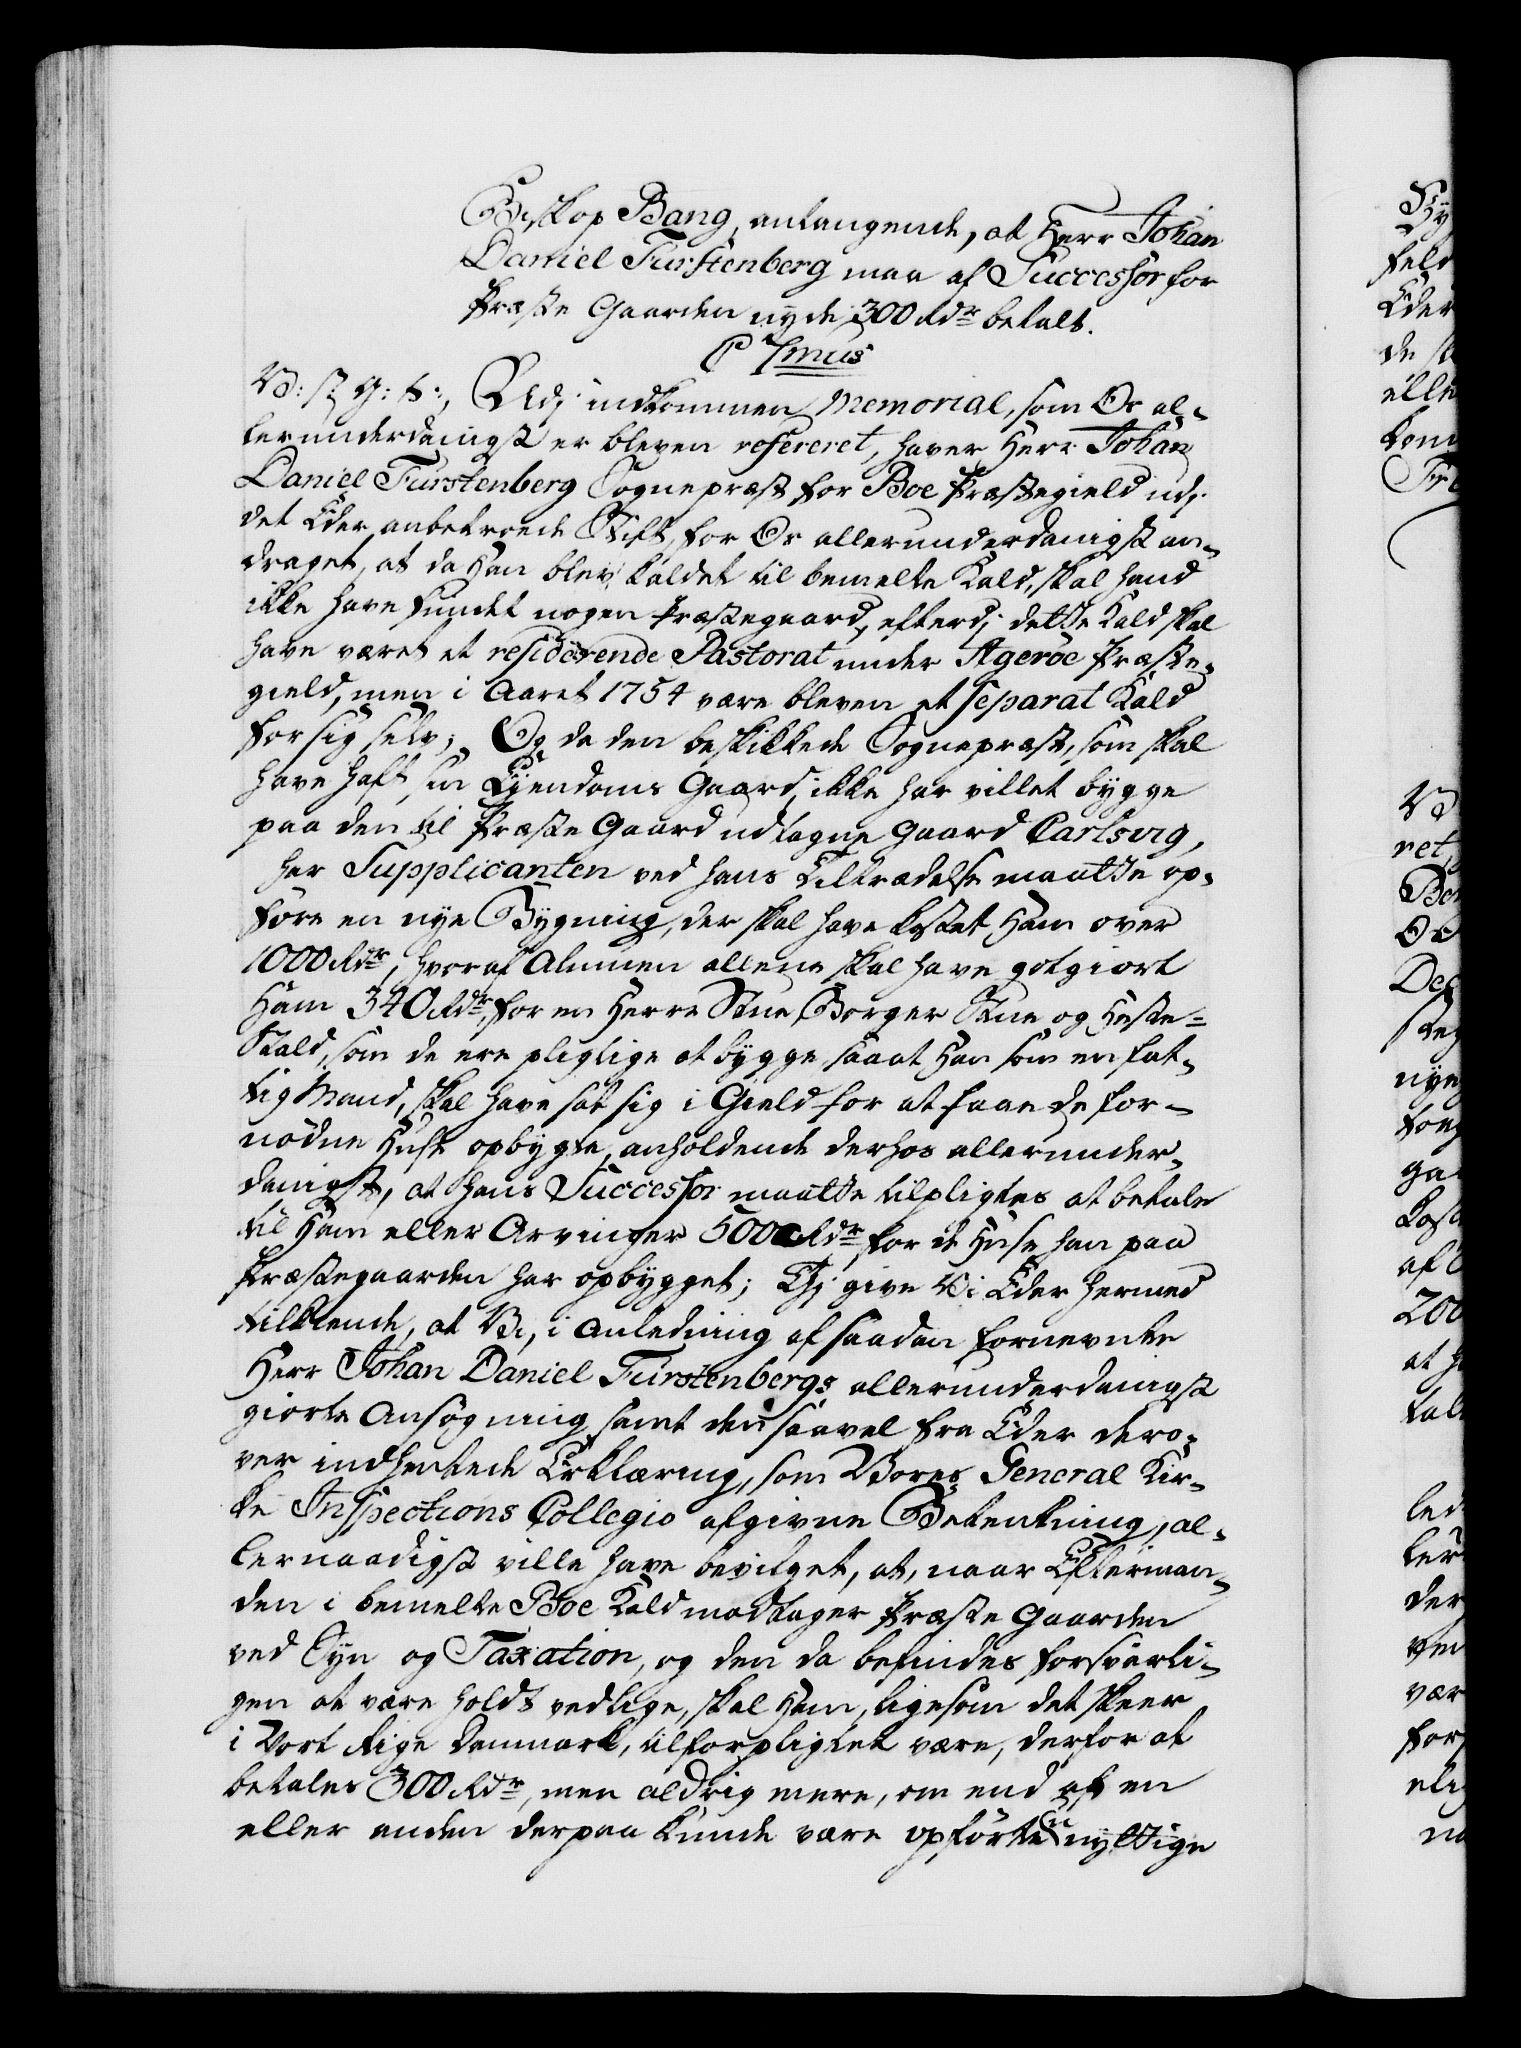 Biskop Bang, anlangende, at Herr Johan
Daniel Fürstenberg maa af Successor for
Præste Gaarden nyde 300 Rdr betalt.
P Smus
V: s: G: t:, Udj indkommen Memorial, som Os al-
lerunderdanigst er bleven refereret, haver Herr Johan
Daniel Fürstenberg Sognepræst for Boe Præstegield udj
det Eder anbetroede Stift, for Os allerunderdanigst an-
draget, at da Han blev kaldet til bemelte Kald, skal hand
ikke have fundet nogen Præstegaard, efterdj dette Kald skal
have været et residerende Pastorat under Ageröe Præste-
gield, men i Aaret 1754 være bleven et separat Kald
for sig selv; Og da den beskikkede Sognepræst, som skal
have haft sin Eyendoms Gaard, ikke har villet bygge
paa den til Præste Gaard udtagne Gaard Carlsvig,
har Supplicanten ved hans Tiltrædelse maatte op-
føre en nye Bygning, der skal have kostet Ham over
1000 Rdr, hvoraf Almuen allene skal have gotgiort
Ham 340 Rdr, for en Herre Stue, Borger Stue og Heste-
Stald, som de ere pligtige at bygge, saa at Han som en fat-
tig Mand, skal have sat sig i Gield for at faae de for-
nødne Huse opbygte, anholdende derhos allerunder-
danigst, at hans Successor maatte tilpligtes at betale
til Ham eller Arvinger 500 Rdr for de Huse han paa
Præstegaarden har opbygget; Thj give Vi Eder hermed
tilkiende, at Vi, i Anledning af saadan fornevnte
Herr Johan Daniel Fürstenbergs allerunderdanigst
giorte Ansøgning, samt den saavel fra Eder dero-
ver indhentede Erklæring, som Vores General Kir-
ke Inspections Collegio afgivne Betenkning, al-
lernaadigst ville have bevilget, at, naar Efterman-
den i bemelte Boe Kald modtager Præste Gaarden
ved Syn og Taxation, og den da befindes forsvarli-
gen at være holdt vedlige, skal Ham, ligesom det skeer
i Vort Rige Danmark, tilforpligtet være, derfor at
betales 300 Rdr, men aldrig mere, om end af en
eller anden derpaa kunde være opførte unyttige